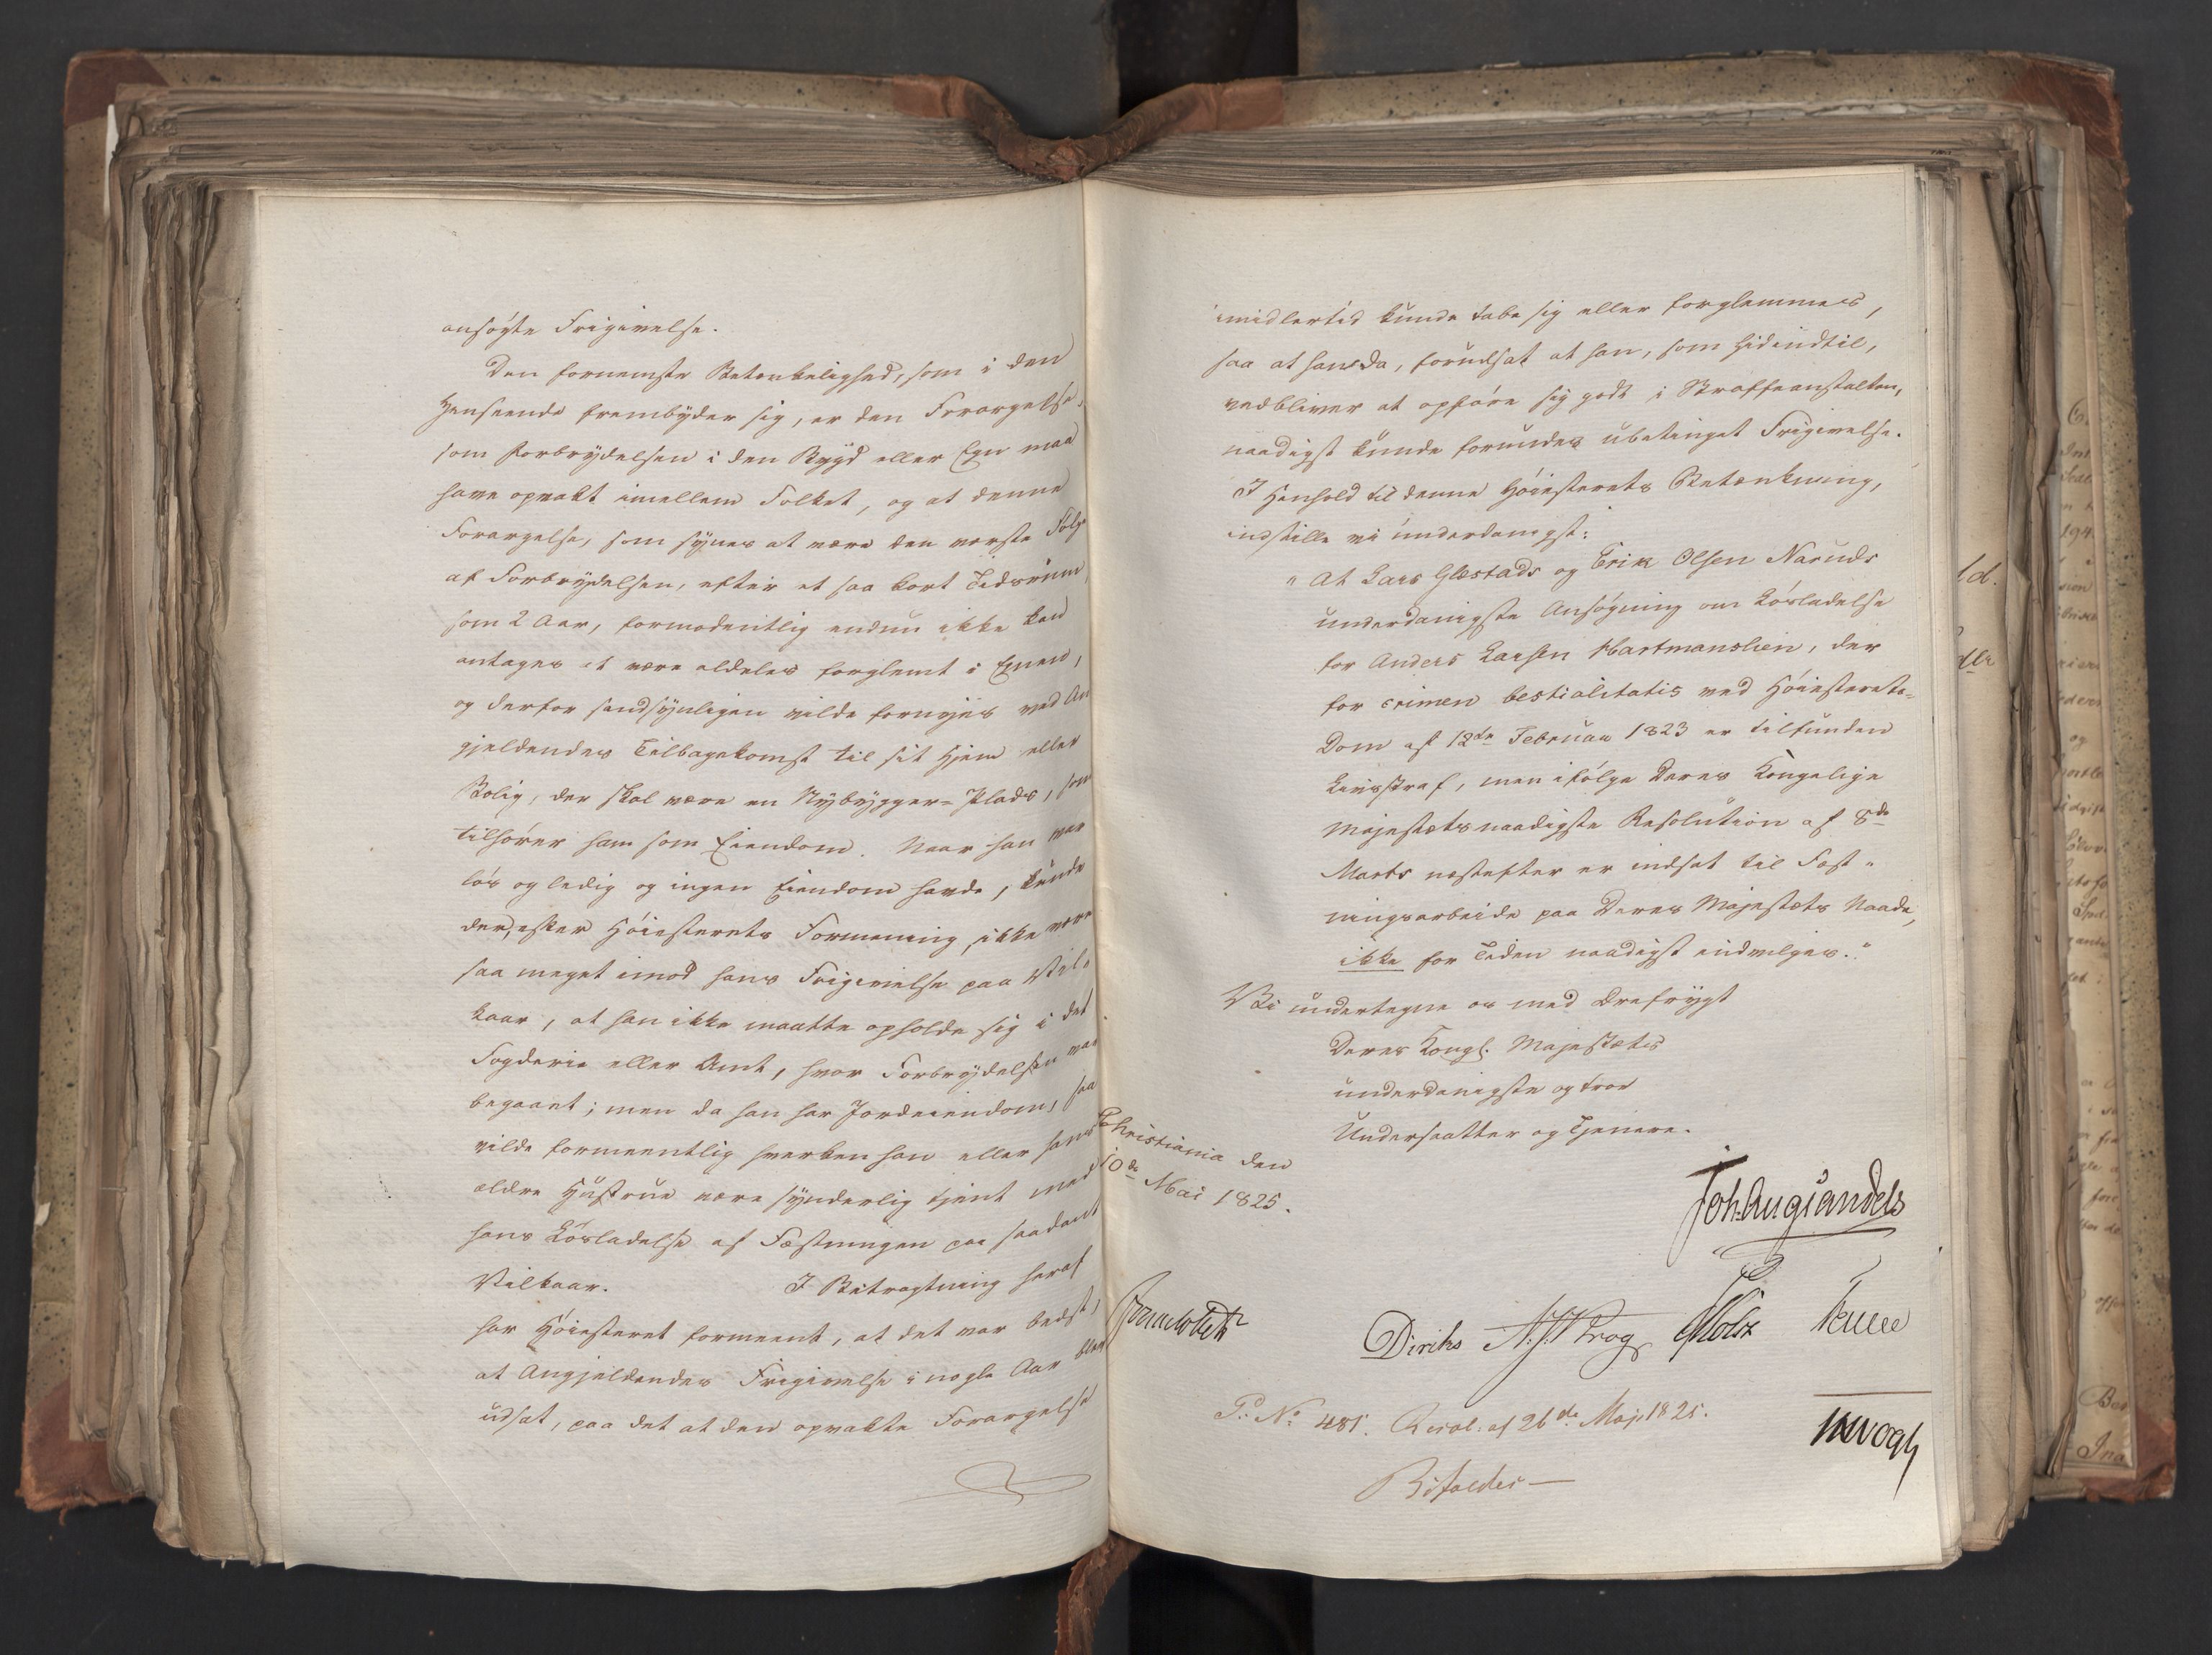 ansøgte Frigivelse.
Den fornemste Betænkelighed, som i den
Henseende frembyder sig, er den Forargelse,
som Forbrydelsen i den Bygd eller Egn maa
have opvakt imellem Folket, og at denne
Forargelse, som synes at være den værste Følge
af Forbrydelsen, efter et saa kort Tidsrum,
som 2 Aar, formodentlig endnu ikke kan
antages at være aldeles forglemt i Egnen,
og derfor sandsynligen vilde fornyes ved An
gjeldendes Tilbagekomst til sit Hjem eller
Bolig, der skal være en Nybygger-Plads, som
tilhører ham som Eiendom. Naar han var
løs og ledig og ingen Eiendom havde, kunde
der, efter Høiesterets Formening, ikke være
saa meget imod hans Frigivelse paa Vil-
kaar, at han ikke maatte opholde sig i det
Fogderie eller Amt, hvor Forbrydelsen var
begaaet; men da han har Jordeiendom, saa
vilde formeentlig hverken han eller hans
ældre Hustrue være synderlig tjent med
hans Løsladelse af Fæstningen paa saadant
Vilkaar. I Betragtning heraf
har Høiesteret formeent, at det var bedst,
at Angjeldendes Frigivelse i nogle Aar blev
udsat, paa det at den opvakte Forargelse
imidlertid kunde tabe sig eller forglemmes,
saa at han da, forudsat at han, som hidindtil,
vedbliver at opføre sig godt i Straffeanstalten,
naadigst kunde forundes ubetinget Frigivelse.
I Henhold til denne Høiesterets Betænkning,
indstille vi underdanigst:
"At Lars Glestads og Erik Olsen Naruds
underdanigste Ansøgning om Løsladelse
for Anders Larsen Hartmanslien, der
for crimen bestialitatis ved Høiesterets-
Dom af 12te Februar 1823 er tilfunden
Livsstraf, men ifølge Deres Kongelige
Majestæts naadigste Resolution af 8de
Marts næstefter er indsat til Fæst-
ningsarbeide paa Deres Majestæts Naade,
ikke for Tiden naadigst indvilges."
Vi undertegne os med Ærefrygt
Deres Kongl. Majestæts
underdanigste og troe
Undersaatter og Tjenere.
Christiania den
10de Mai 1825.
Joh. Aug. Sandels
Diriks N. J. Krog Motzfeldt
P. No 481. Resol: af 26de Maji 1825.
Bifaldes—
JHVogt